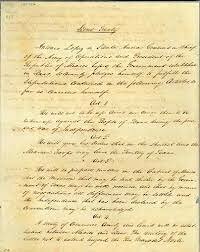 Secret Treaty
Antonio Lopez de Santa Anna General in Chief
of the Army of Operations and President of the
Republic of Mexico before the Government established
in Texas solemnly pledges himself to fulfill the
Stipulations contained in the following Articles so far
as concerns himself
Art 1
He will not take up Arms nor cause them to be
taken up against the People of Texas during the present
war of Independence
Art 2
He will give his Orders that in the shortest time the
Mexican Troops may leave the Territory of Texas
Art 3
He will so prepare matters in the Cabinet of Mexico
that the Mission that may be sent thither by the Government
of Texas may be well received and that by means
of negotiations all differences may be settled and the
Independence that has been declared by the
Convention may be acknowledged
Art 4
A treaty of Commerce Amity and limits will be established
between Mexico and Texas the territory of the
latter not to extend beyond the Rio Bravo del Norte